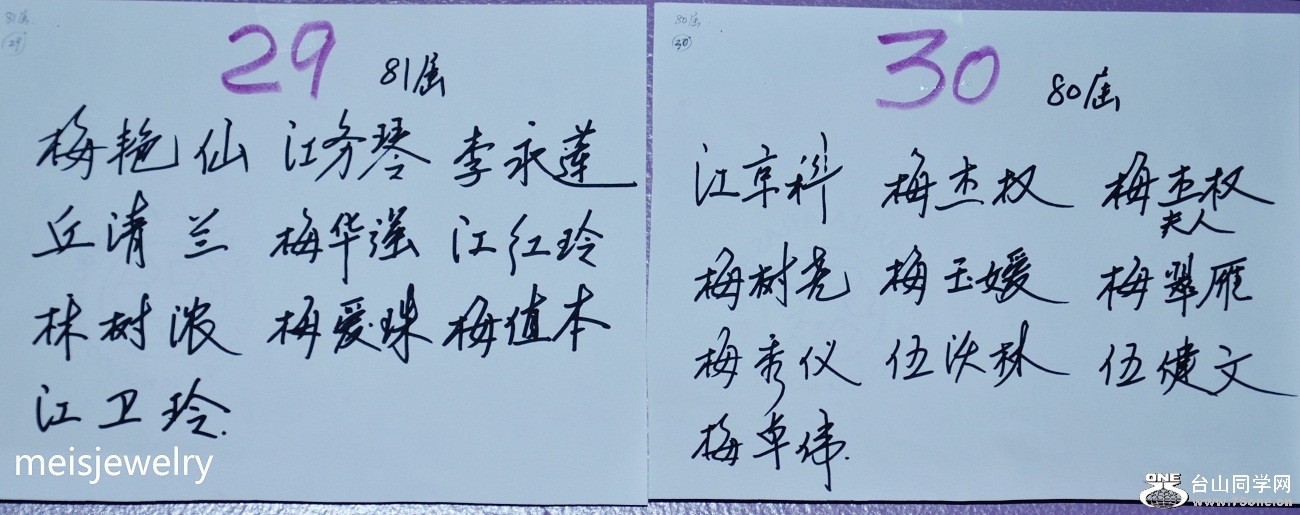 81届
29
29 81届
梅艳仙 江务琴 李永莲
丘清兰 梅华强 江红玲
林树浓 梅爱珠 梅值本
江卫玲.
meisjewelry
80届
30
30 80届
江京科 梅杰权 梅杰权
夫人
梅树尧 梅玉嫒 梅翠雁
梅秀仪 伍沃林 伍健文
梅卓伟.
ONE 台山同学网